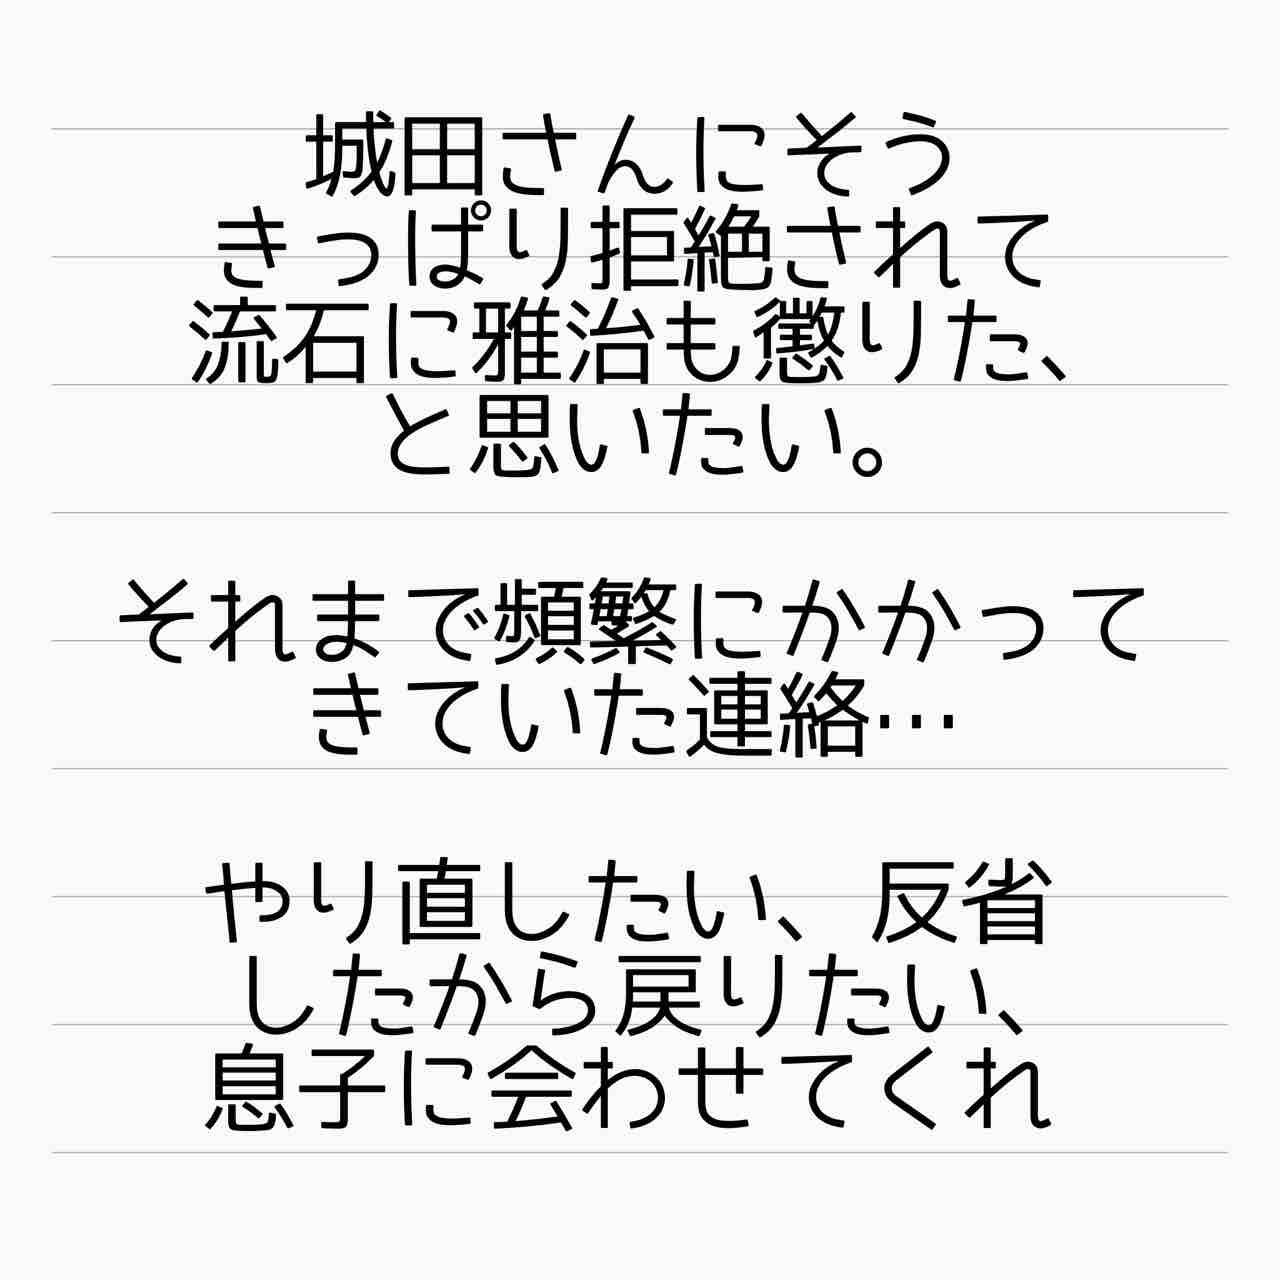 城田さんにそう
きっぱり拒絶されて
流石に雅治も懲りた、
と思いたい。
それまで頻繁にかかって
きていた連絡…
やり直したい、反省
したから戻りたい、
息子に会わせてくれ